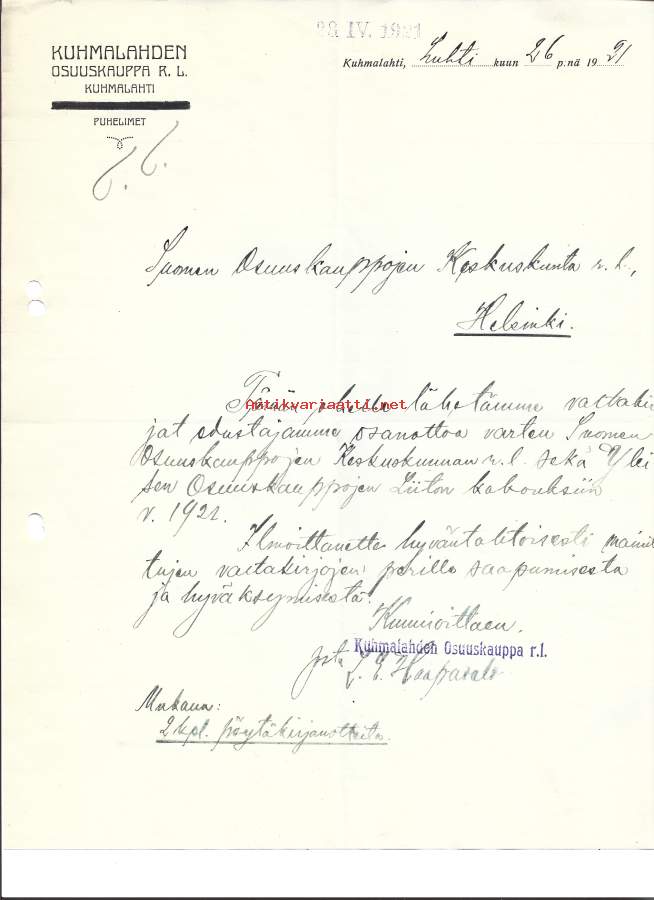 28 IV. 1921
KUHMALAHDEN
OSUUSKAUPPA R. L.
KUHMALAHTI
PUHELIMET
Kuhmalahti, huhti kuun 26 p:nä 1921
Suomen Osuuskauppojen Keskuskunta r.l.,
Helsinki.
Tämän ohella lähetämme valtakir
Antikvariaatti.net
jat edustajamme osanottoa varten Suomen
Osuuskauppojen Keskuskunnan r.l. sekä Ylei
sen Osuuskauppojen Liiton kokouksiin
v. 1921.
Ilmoittanette hyväntahtoisesti mainit
tujen valtakirjojen perille saapumisesta
ja hyväksymisestä.
Kunnioittaen.
Kuhmalahden Osuuskauppa r.l.
Haapasalo
Mukana:
2 kpl. pöytäkirjanotteita.